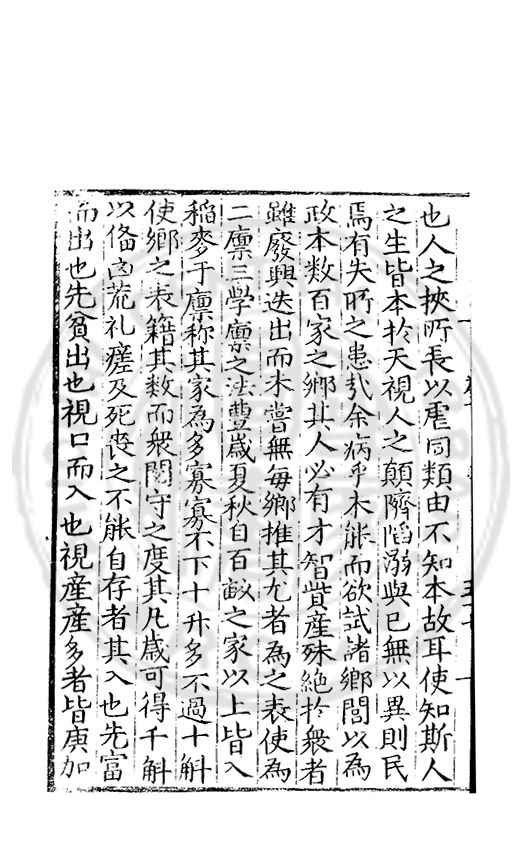 也人之挾所長以虐同類由不知本故耳使知斯人
之生皆本於天視人之顛隮陷溺與已無以異則民
焉有失所之患哉余病乎未能而欲試諸鄉閭以為
政本数百家之鄉其人必有才智貲產殊絶於衆者
雖廢興迭出而未嘗無每鄉推其尤者為之表使為
二廪三學廪之法豐歲夏秋自百畝之家以上皆入
稲麥于廪称其家為多寡寡不下十升多不過十斛
使鄉之表籍其数而衆閲守之度其凡歲可得千斛
以俻凶荒礼瘥及死喪之不能自存者其入也先富
而出也先貧出也視口而入也視産産多者皆庚加